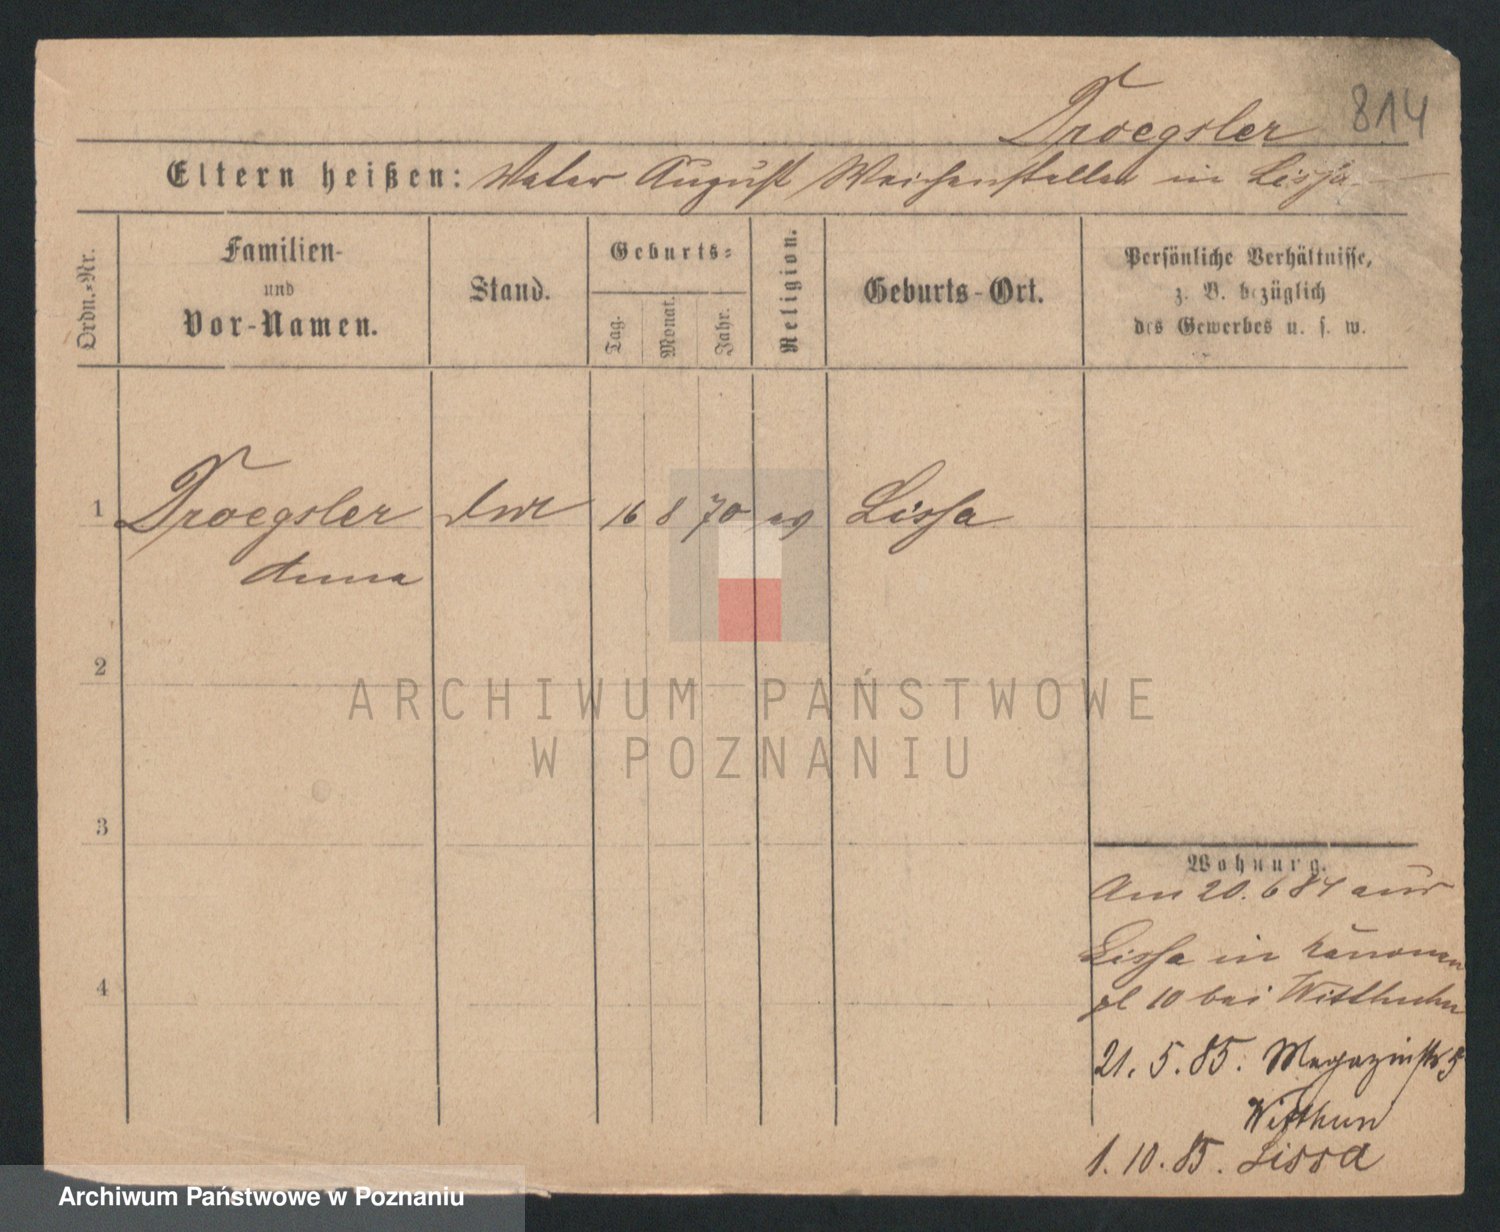 Troegsler 814
Eltern heißen: Vater August Weichensteller in Lissa
Ordn.-Nr.
Familien-
und
Vor-Namen.
Stand.
Geburts-
Tag.
Monat.
Jahr.
Religion.
Geburts-Ort.
Persönliche Verhältnisse,
z. B. bezüglich
des Gewerbes u. s. w.
1 Troegsler 16 8 70 ev Lissa
Anna
2
ARCHIWUM PAŃSTWOWE
W POZNANIU
3
Wohnung.
Am 20.6 84 aus
Lissa in Kanonen
pl 10 bei Witthuhn
4
21. 5. 85. Magazinstr 5
Witthun
1. 10. 85. Lissa
Archiwum Państwowe w Poznaniu